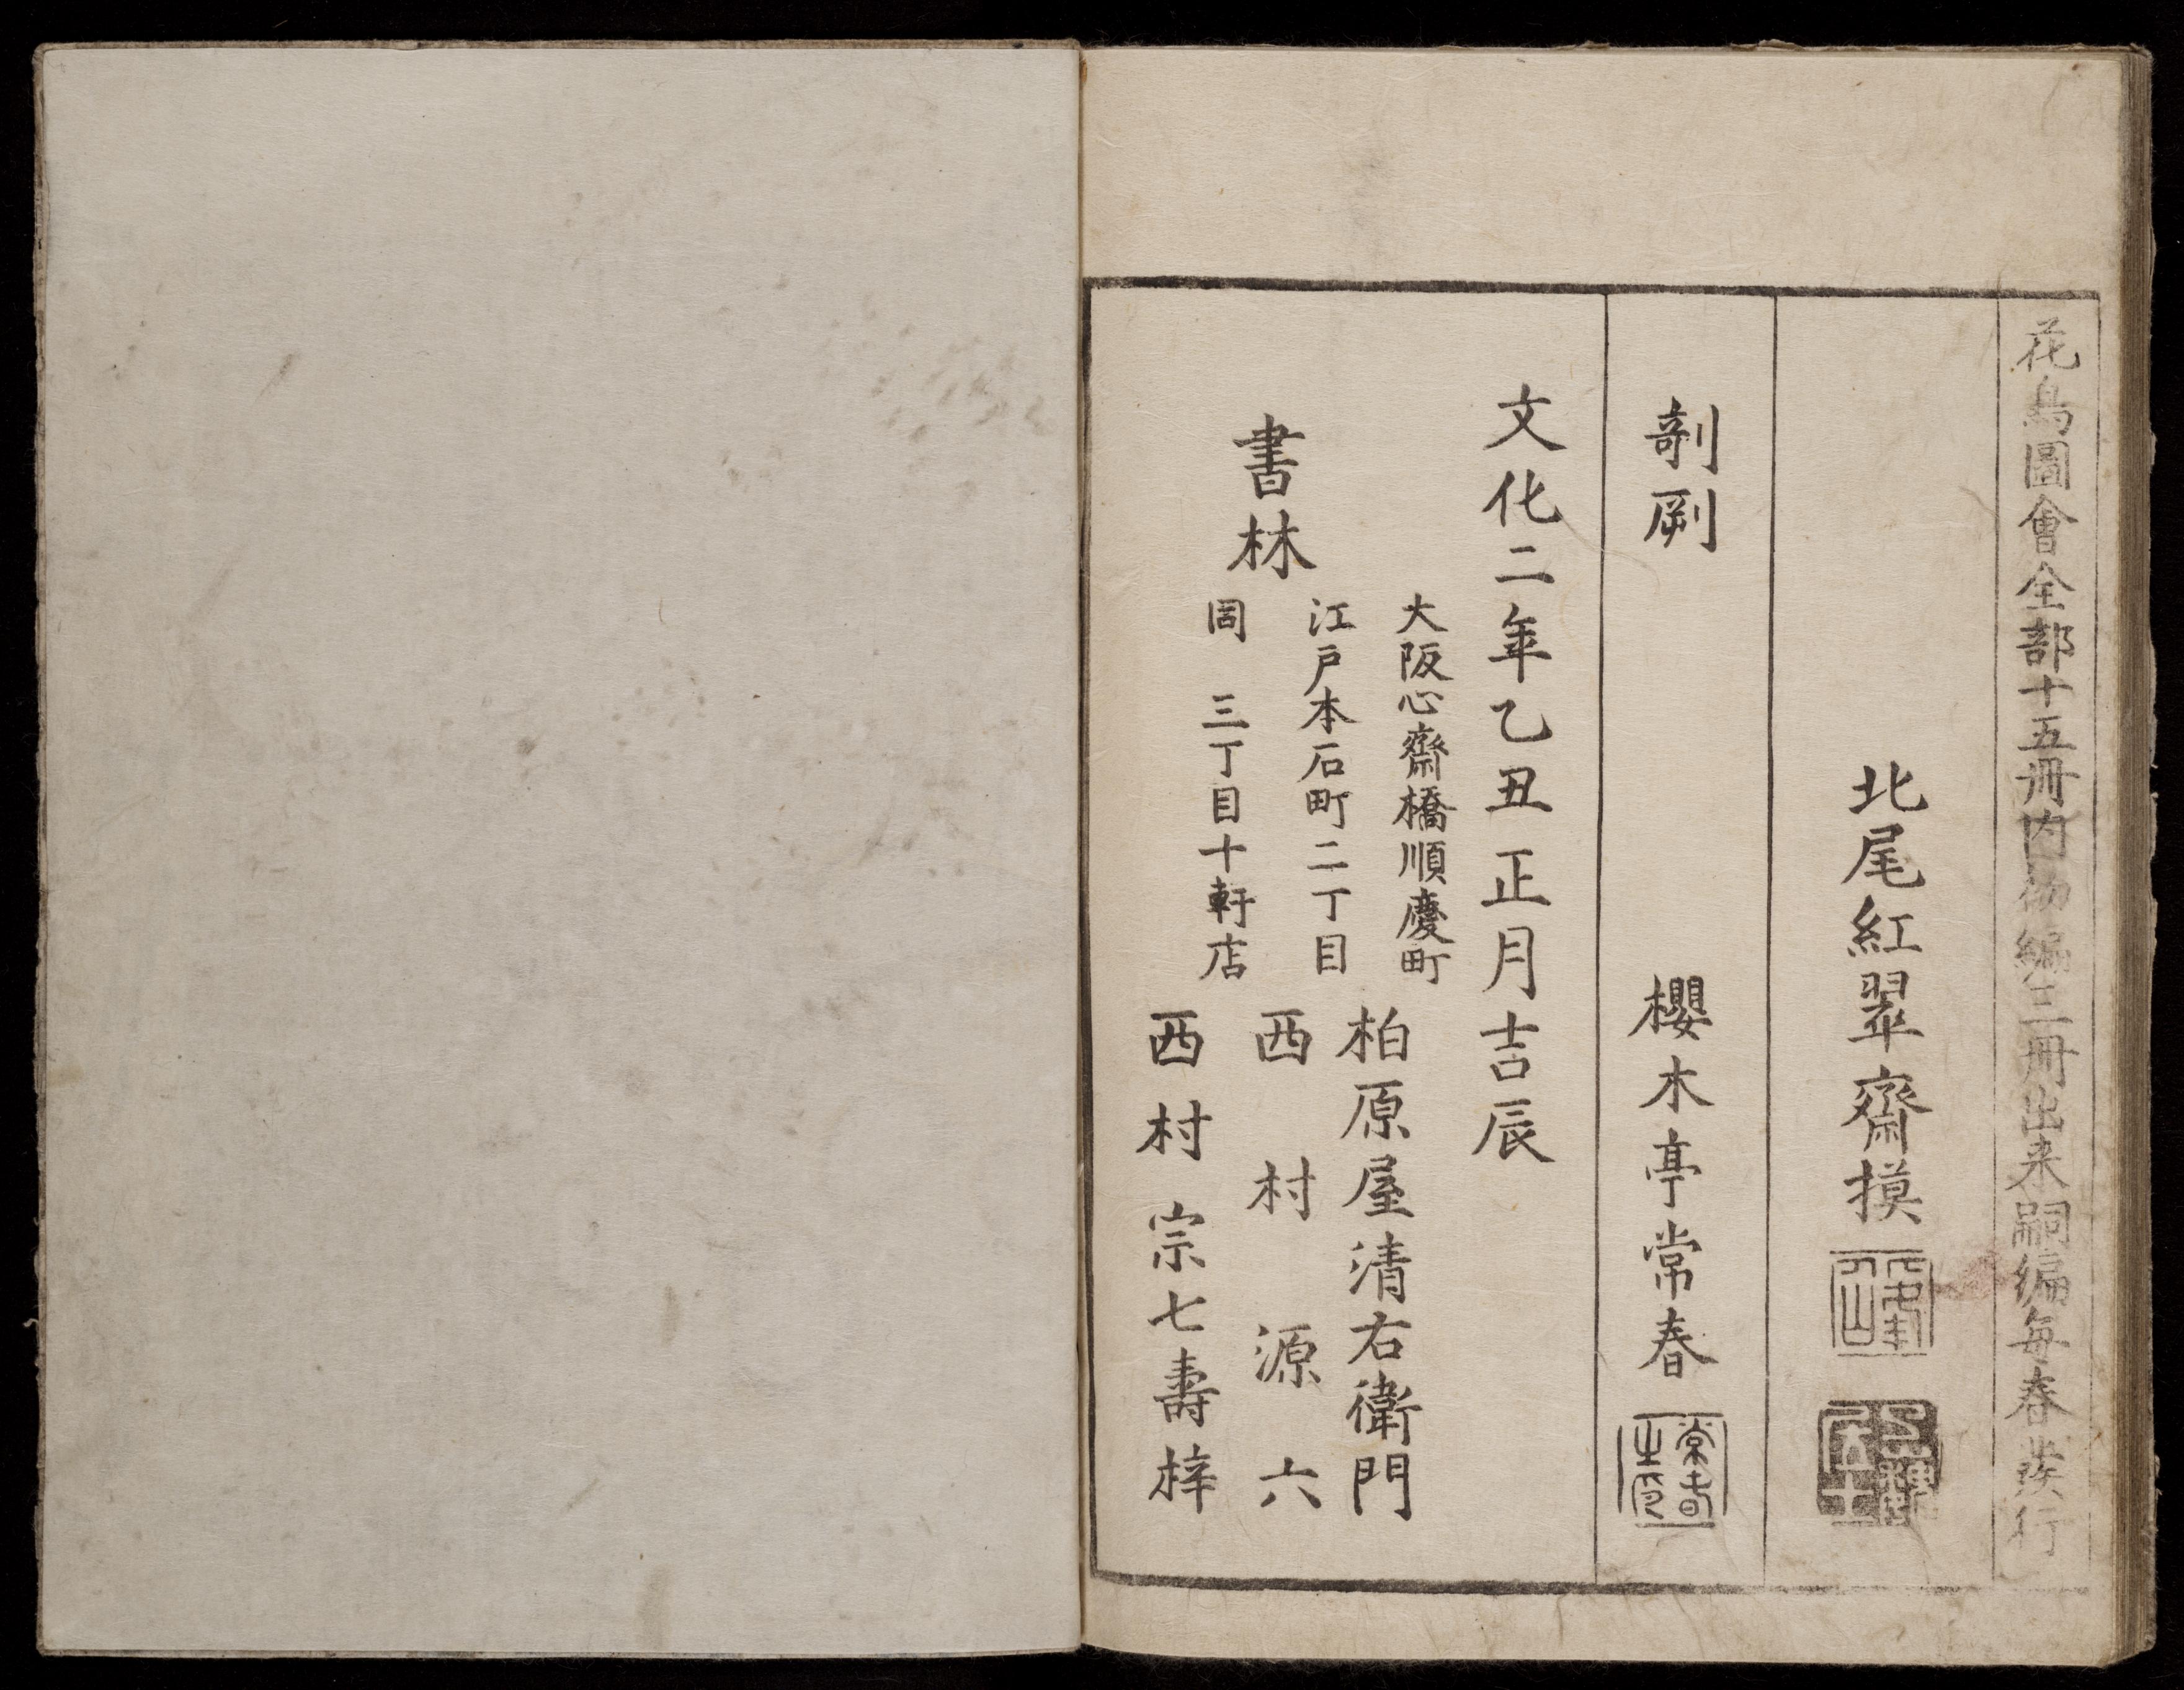 花鳥圖會全部十五冊内初編三冊出来嗣編毎春発行
北尾紅翠齋摸
剞劂
櫻木亭常春
常春之印
文化二年乙丑正月吉辰
書林
大阪心齋橋順慶町
柏原屋清右衛門
江戸本石町二丁目
西村源六
同 三丁目十軒店
西村宗七壽梓